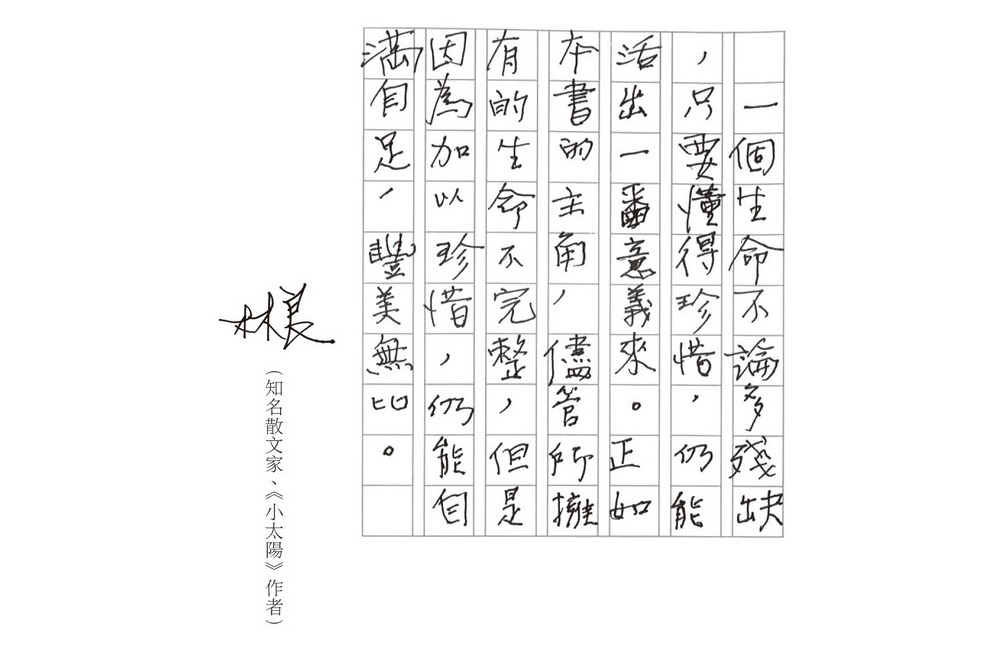 一個生命不論多殘缺
,只要懂得珍惜,仍能
活出一番意義來。正如
本書的主角,儘管所擁
有的生命不完整,但是
因為加以珍惜,仍能自
滿自足,豐美無比。
林良
(知名散文家、《小太陽》作者)